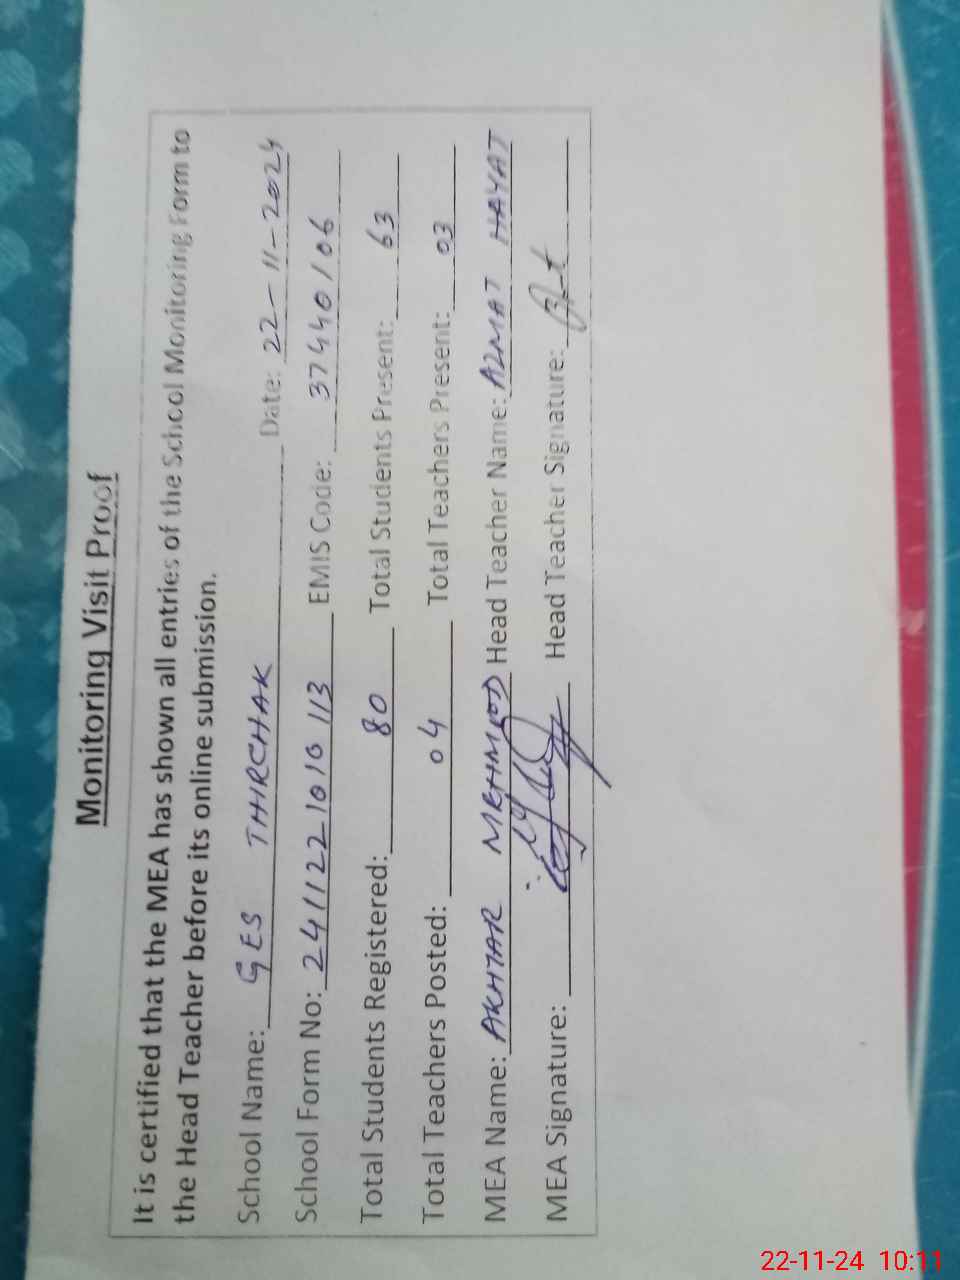 Monitoring Visit Proof
It is certified that the MEA has shown all entries of the School Monitoring Form to
the Head Teacher before its online submission.
School Name: GES THIRCHAK Date: 22-11-2024
School Form No: 241122 1010 113 EMIS Code: 37440106
Total Students Registered: 80 Total Students Present: 63
Total Teachers Posted: 04 Total Teachers Present: 03
MEA Name: AKHTAR MEHMOOD Head Teacher Name: AZMAT HAYAT
MEA Signature: Head Teacher Signature:
22-11-24 10:11